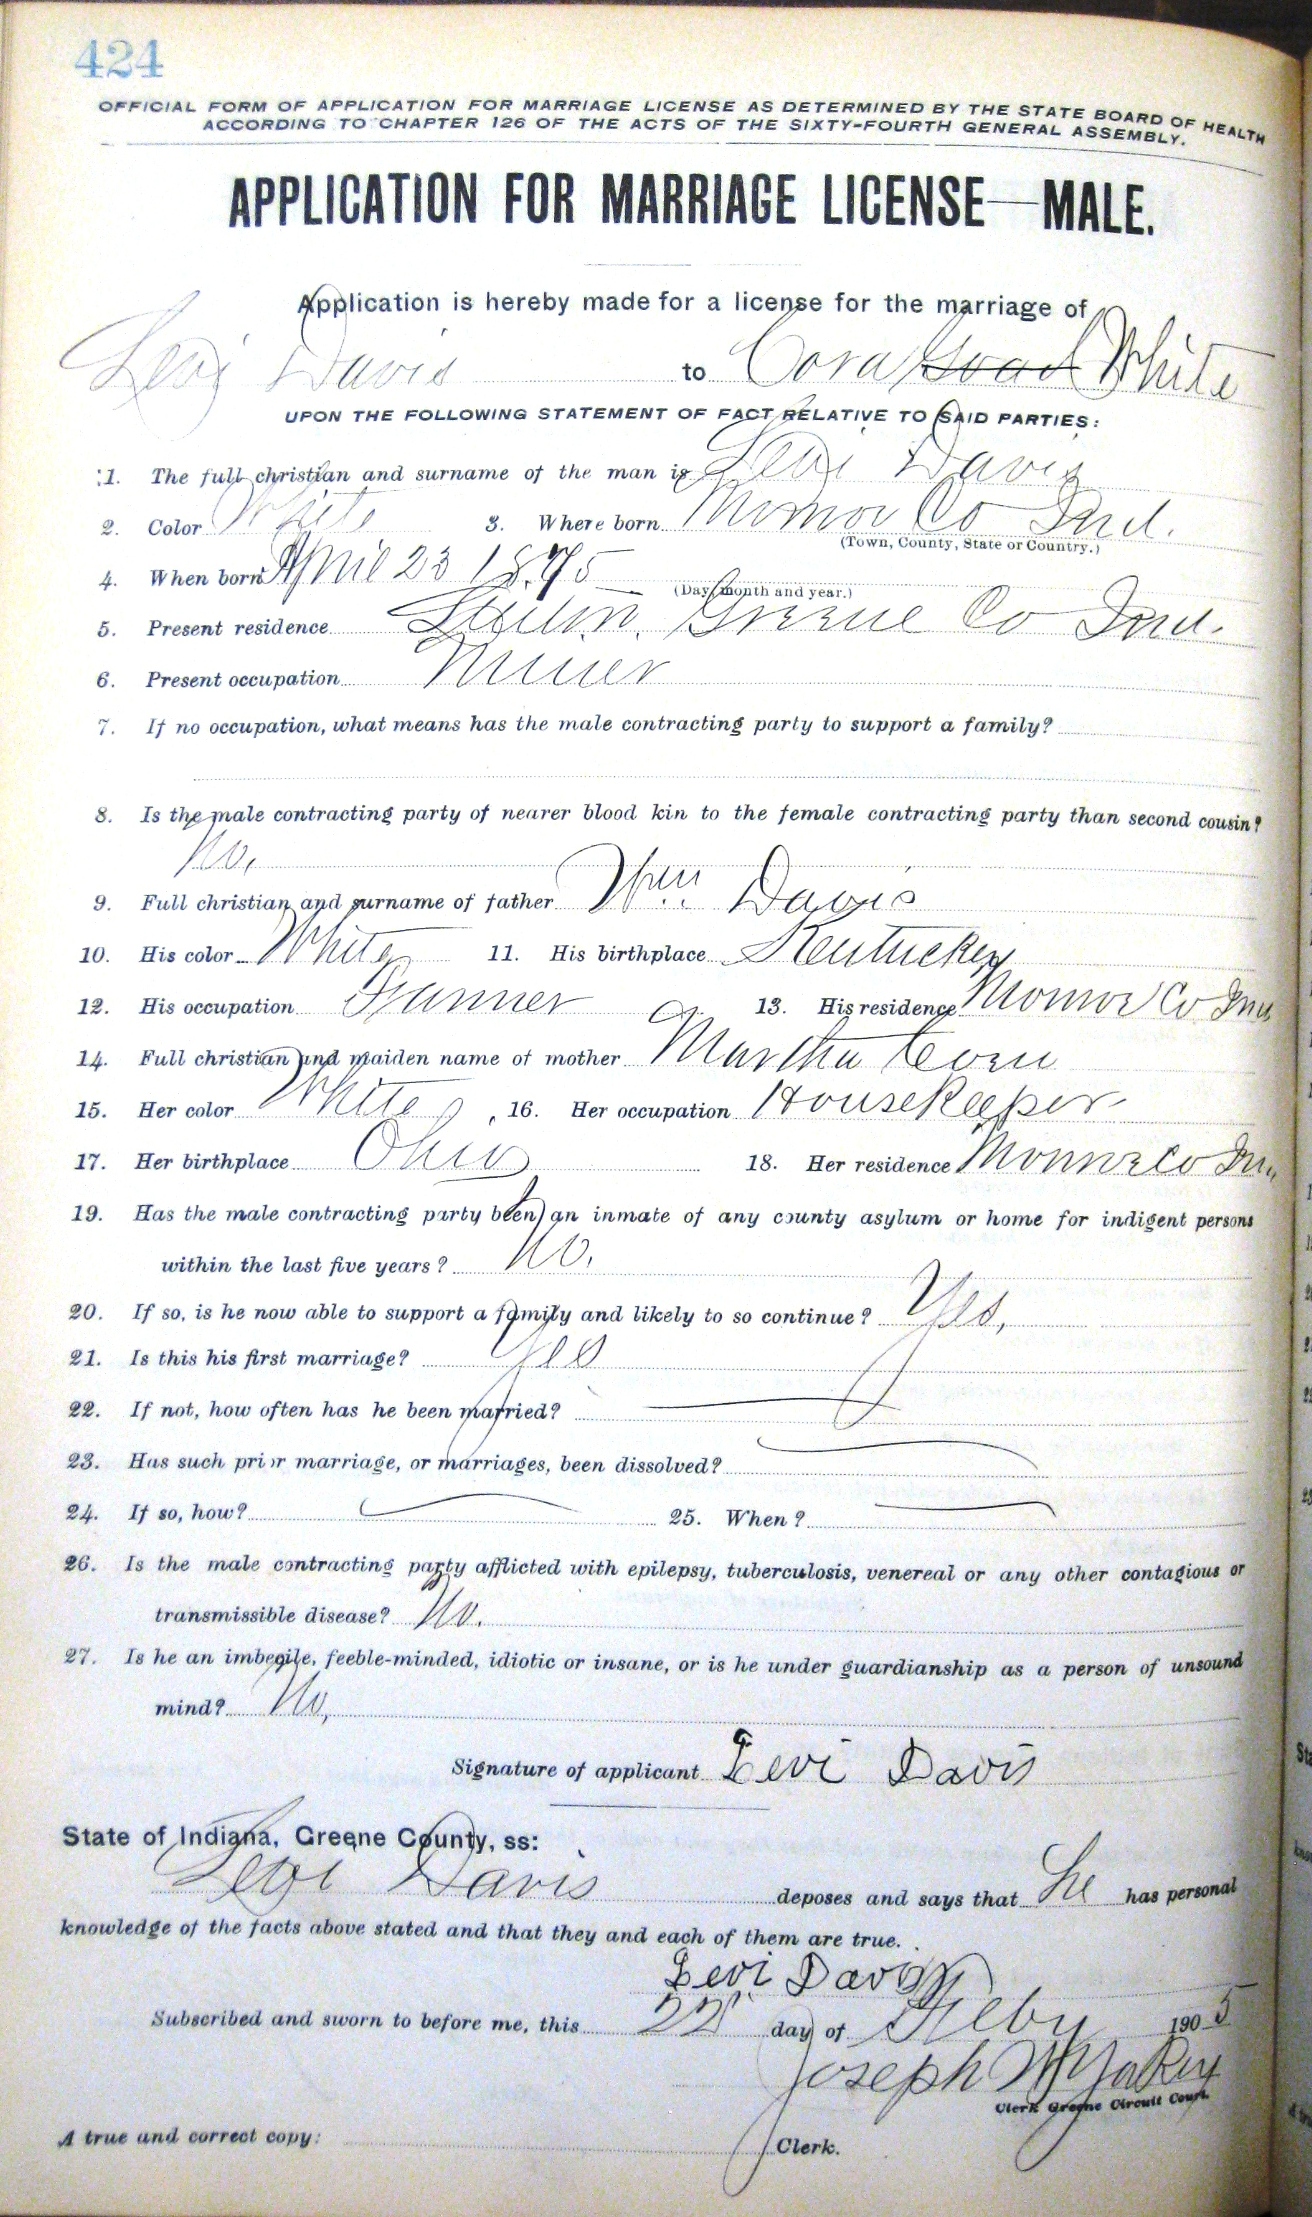 424
OFFICIAL FORM OF APPLICATION FOR MARRIAGE LICENSE AS DETERMINED BY THE STATE BOARD OF HEALTH
ACCORDING TO CHAPTER 126 OF THE ACTS OF THE SIXTY-FOURTH GENERAL ASSEMBLY.
APPLICATION FOR MARRIAGE LICENSE—MALE.
Application is hereby made for a license for the marriage of
Levi Davis to Cora Goad White
UPON THE FOLLOWING STATEMENT OF FACT RELATIVE TO SAID PARTIES:
1. The full christian and surname of the man is Levi Davis
2. Color White 3. Where born Monroe Co Ind.
(Town, County, State or Country.)
4. When born April 23 1875
(Day, month and year.)
5. Present residence Greene Co Ind.
6. Present occupation Miner
7. If no occupation, what means has the male contracting party to support a family?
8. Is the male contracting party of nearer blood kin to the female contracting party than second cousin?
No.
9. Full christian and surname of father Wm Davis
10. His color White 11. His birthplace Kentuckey
12. His occupation Farmer 13. His residence Monroe Co Ind
14. Full christian and maiden name of mother Martha Corn
15. Her color White 16. Her occupation Housekeeper
17. Her birthplace Ohio 18. Her residence Monroe Co In.
19. Has the male contracting party been an inmate of any county asylum or home for indigent persons
within the last five years? No.
20. If so, is he now able to support a family and likely to so continue? Yes,
21. Is this his first marriage? Yes
22. If not, how often has he been married?
23. Has such prior marriage, or marriages, been dissolved?
24. If so, how? 25. When?
26. Is the male contracting party afflicted with epilepsy, tuberculosis, venereal or any other contagious or
transmissible disease? No.
27. Is he an imbecile, feeble-minded, idiotic or insane, or is he under guardianship as a person of unsound
mind? No,
Signature of applicant Levi Davis
State of Indiana, Greene County, ss:
Levi Davis deposes and says that he has personal
knowledge of the facts above stated and that they and each of them are true.
Levi Davis
Subscribed and sworn to before me, this 22 day of Feby 1905
Joseph W Yakey
Clerk Greene Circuit Court.
A true and correct copy: Clerk.